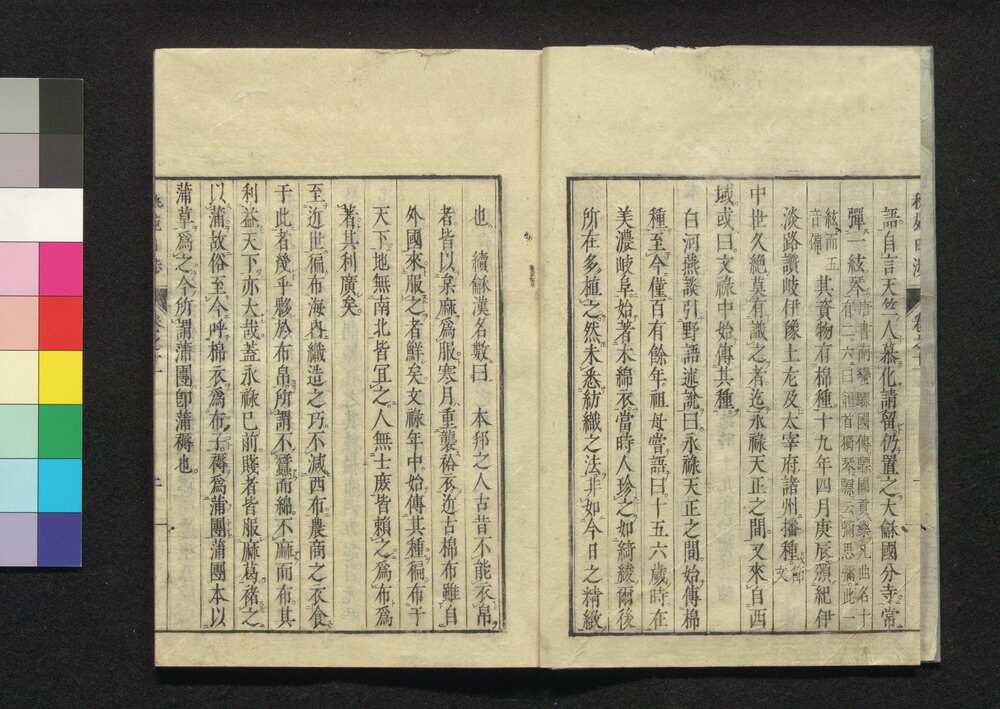 語自言天竺人慕化請留仍置之大穌國分寺常
彈一絃琴
唐書南蠻驃國傳驃國貢樂凡曲名十
有二六曰
絃而五
音備
其賚物有棉種十九年四月庚辰頒紀伊
淡路讚岐伊豫土左及太宰府諸州播種
節文
中世久絶莫有識之者迄永祿天正之間又來自西
域或曰文祿中始傳其種
白河燕談引野語述說曰永祿天正之間始傳棉
種至今僅百有餘年祖母嘗語曰十五六歲時在
美濃岐阜始著木綿衣當時人珍之如綺綾爾後
所在多種之然未悉紡織之法非如今日之精緻
也 續穌漢名數曰 本邦之人古昔不能衣帛
者皆以枲麻爲服寒月重襲袷衣近古棉布雖自
外國來服之者鮮矣文祿年中始傳其種徧布于
天下地無南北皆宜之人無士庻皆賴之爲布爲
著其利廣矣
至近世徧布海內織造之巧不減西布農商之衣食
于此者幾乎夥於布帛所謂不蠶而綿不麻而布其
利益天下亦大哉蓋永祿已前賤者皆服麻葛褚之
以蒲故俗至今呼棉衣爲布子褥爲蒲團蒲團本以
蒲草爲之今所謂蒲團卽蒲褥也